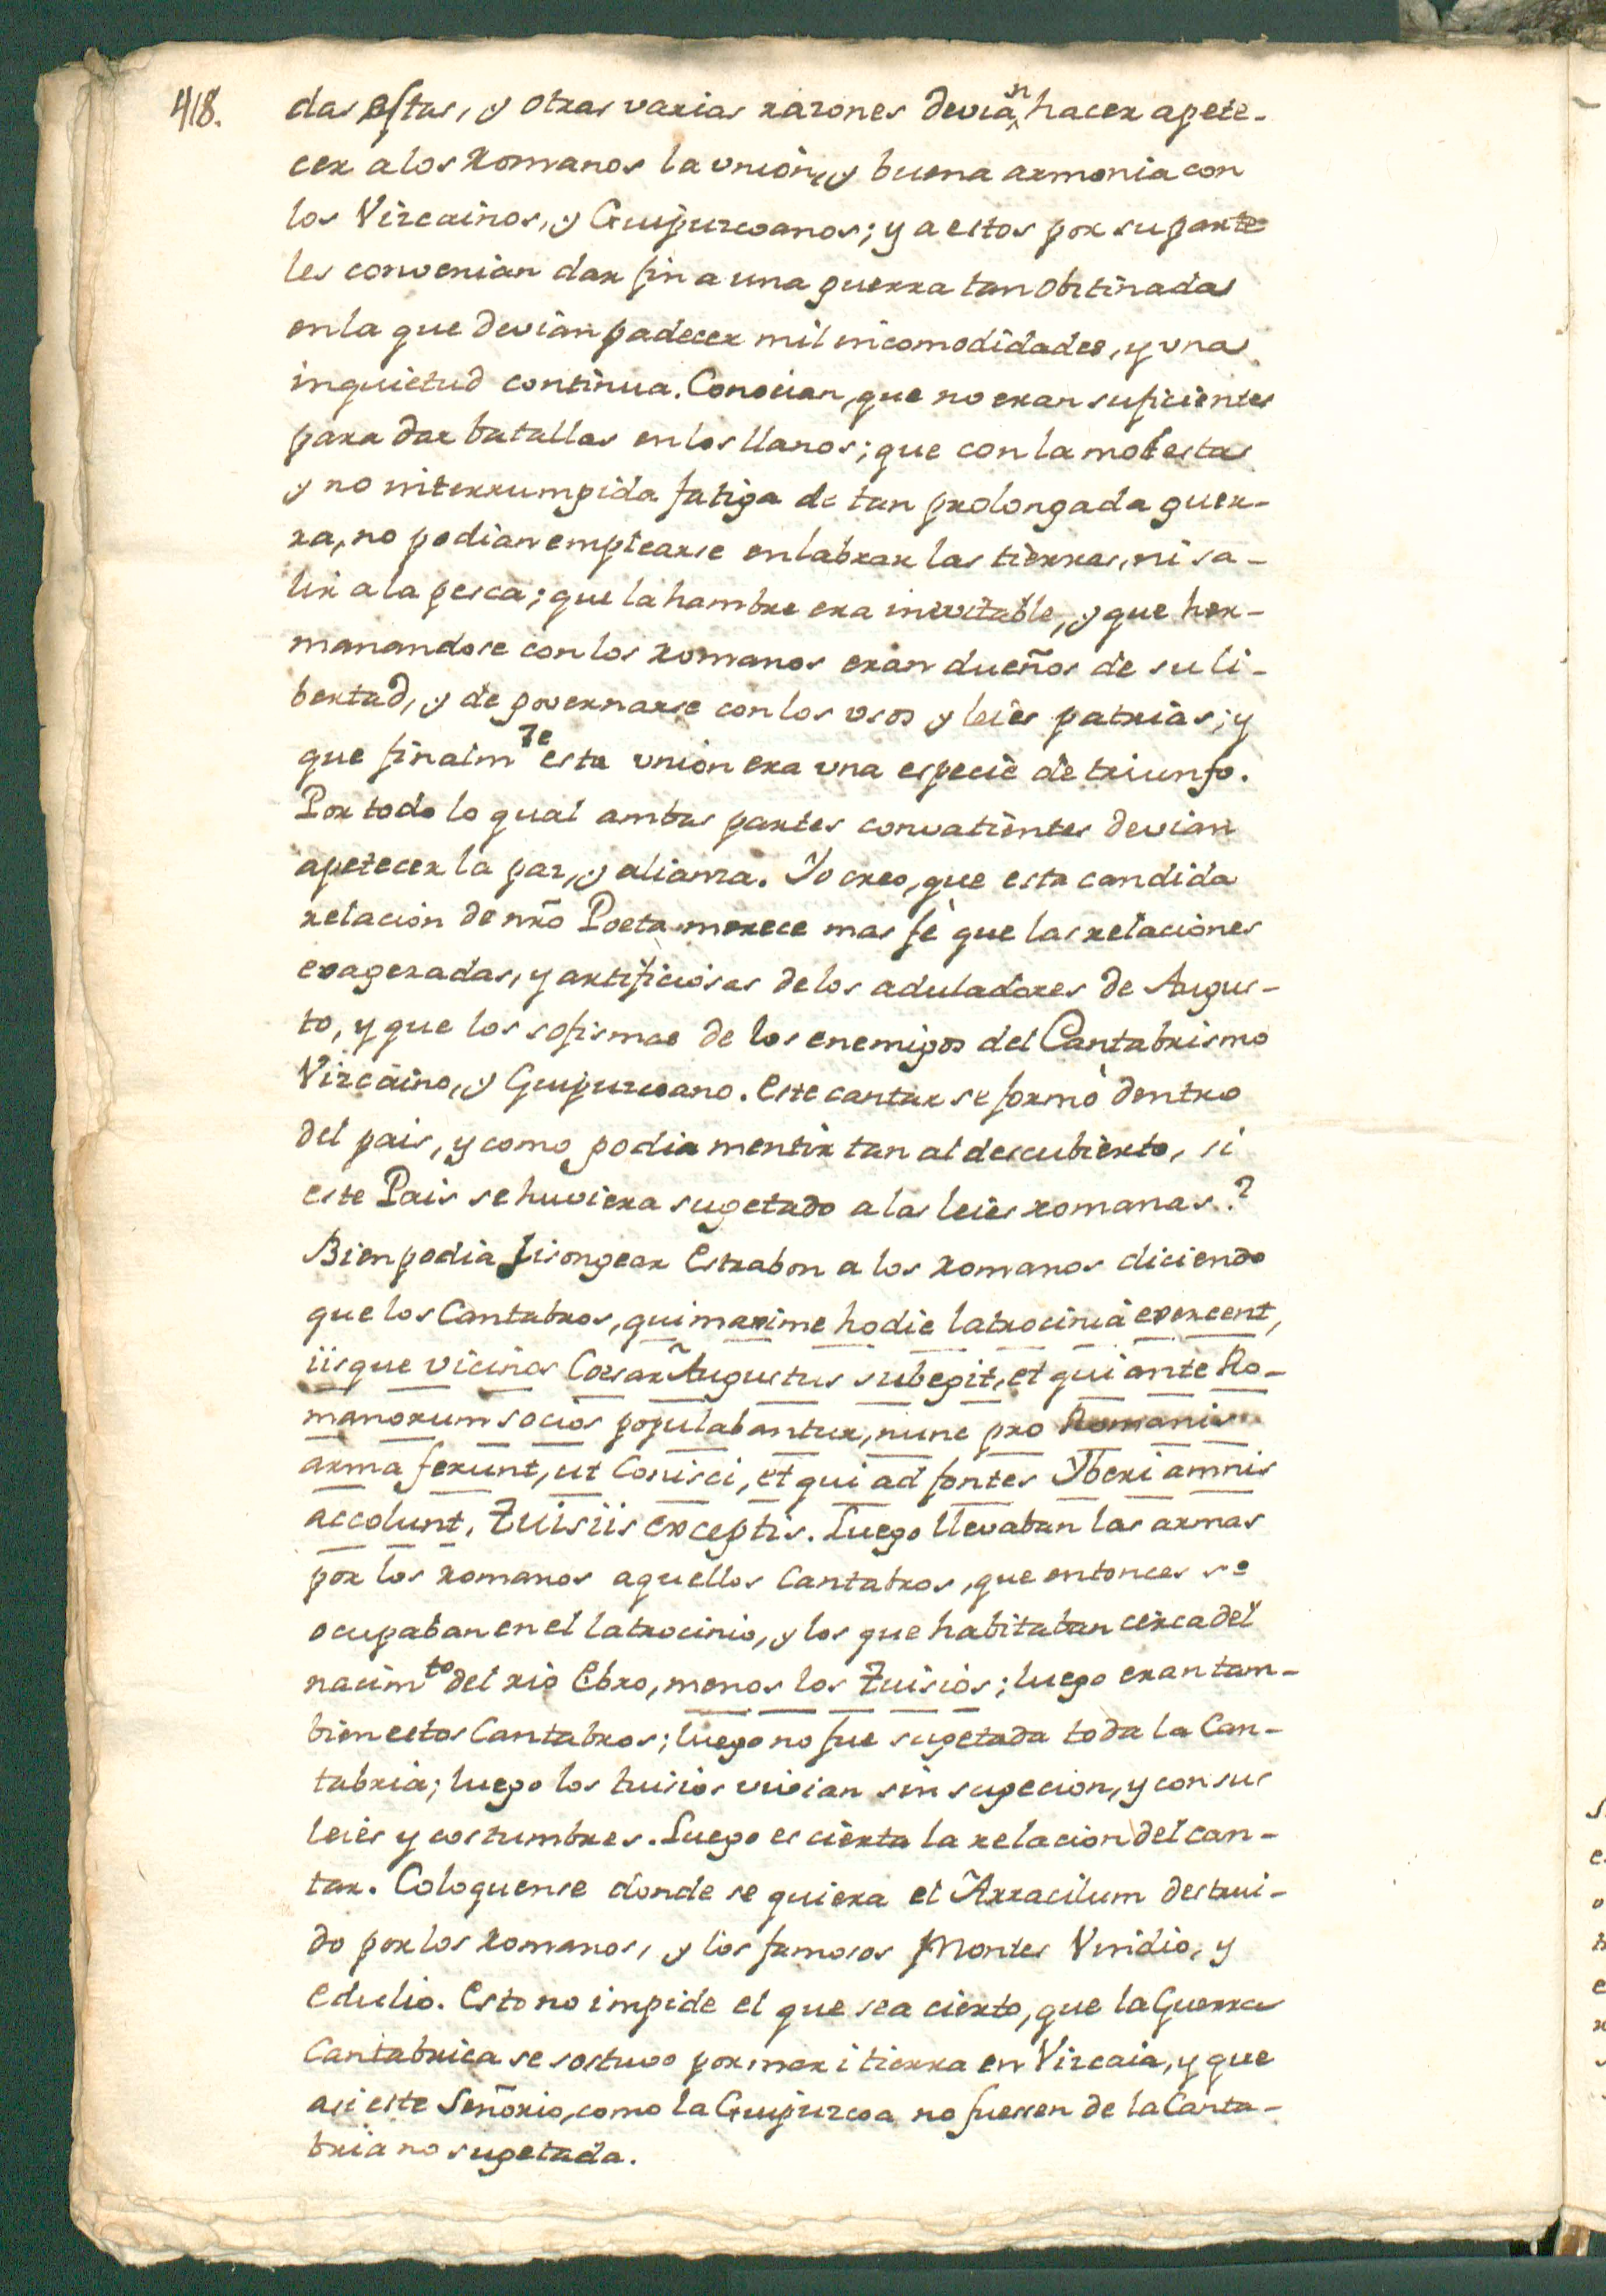 418.
das estas, y otras varias razones devian hacer apete-
cer a los Romanos la vnion, y buena armonia con
los Vizcainos, y Guipuzcoanos; y a estos por su parte
les convenian dar fin a una guerra tan obstinada
en la que devian padecer mil incomodidades, y vna
inquietud continua. Conocian, que no eran suficientes
para dar batallas en los llanos; que con la molesta
y no interrumpida fatiga de tan prolongada guer-
ra, no podian emplearse en labrar las tierras, ni sa-
lir a la pesca; que la hambre era inevitable, y que her-
manandose con los Romanos eran dueños de su li-
bertad, y de governarse con los vsos y leies patrias; y
que finalmte esta vnion era vna especie de triunfo.
Por todo lo qual ambas partes convatientes devian
apetecer la paz, y alianza. Yo creo, que esta candida
relacion de nrõ Poeta merece mas fè que las relaciones
exageradas, y artificiosas de los aduladores de Augus-
to, y que los sofismas de los enemigos del Cantabrismo
Vizcaino, y Guipuzcoano. Este cantar se formò dentro
del pais, y como podia mentir tan al descubierto, si
este Pais se huviera sugetado a las leies romanas?
Bien podia lisongear Estrabon a los Romanos diciendo
que los Cantabros, qui maxime hodie latrocinia exercent,
iisque vicinos Cæsar Augustus subegit, et qui ante Ro-
manorum socios populabantur, nunc pro Romanis
arma ferunt, ut Conisci, et qui ad fontes Yberi amnis
accolunt, Tuisiis exceptis. Luego llevaban las armas
por los romanos aquellos Cantabros, que entonces se
ocupaban en el latrocinio, y los que habitaban cerca del
nacimto del rio Ebro, menos los Tuisios; luego eran tam-
bien estos Cantabros; luego no fue sugetada toda la Can-
tabria; luego los tuisios vivian sin sugecion, y con sus
leies y costumbres. Luego es cierta la relacion del can-
tar. Coloquense donde se quiera el Arracilum destrui-
do por los Romanos, y los famosos Montes Vindio, y
Edulio. Esto no impide el que sea cierto, que la Guerra
Cantabrica se sostuvo por mar i tierra en Vizcaia, y que
asi este Señorio, como la Guipuzcoa no fuesen de la Canta-
bria no sugetada.